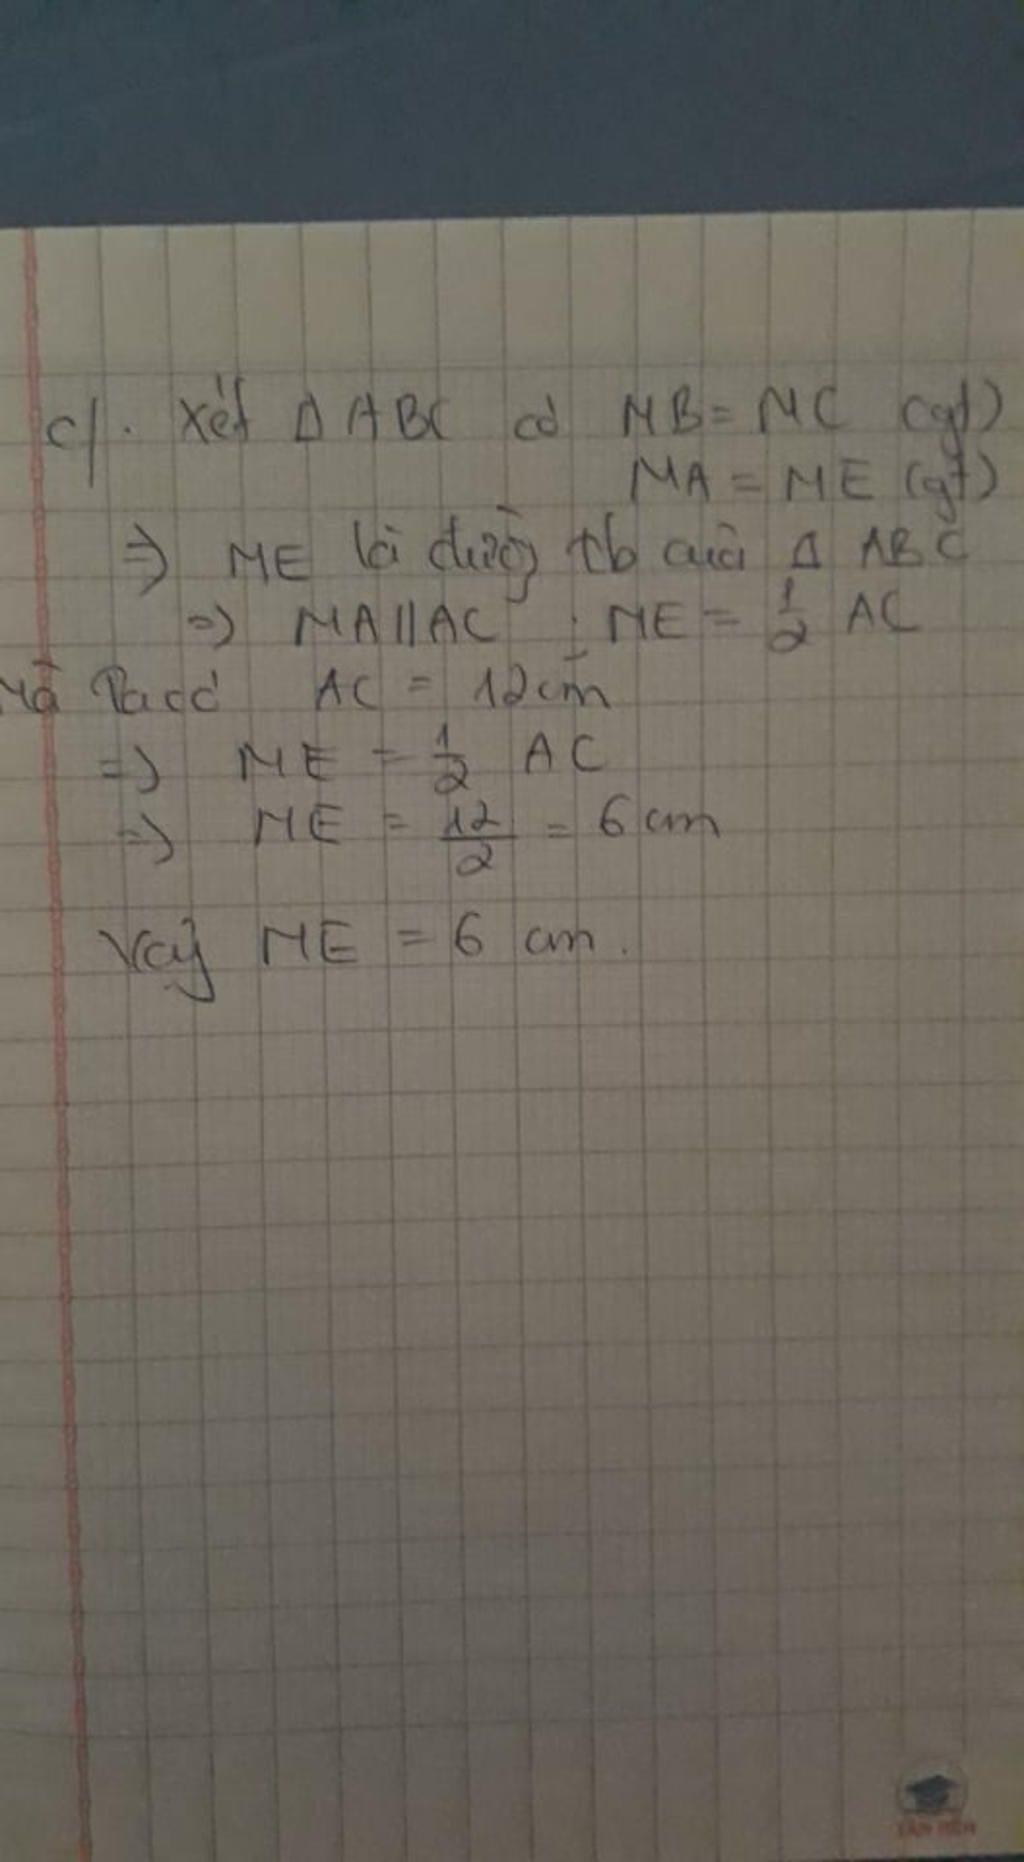 c/. Xét Δ ABC có MB = MC (gt)
MA = ME (gt)
=> ME là đường tb của Δ ABC
=> MA // AC ; ME = 1/2 AC
Mà Ta có AC = 12 cm
=> ME = 1/2 AC
=> ME = 12/2 = 6 cm
Vậy ME = 6 cm.